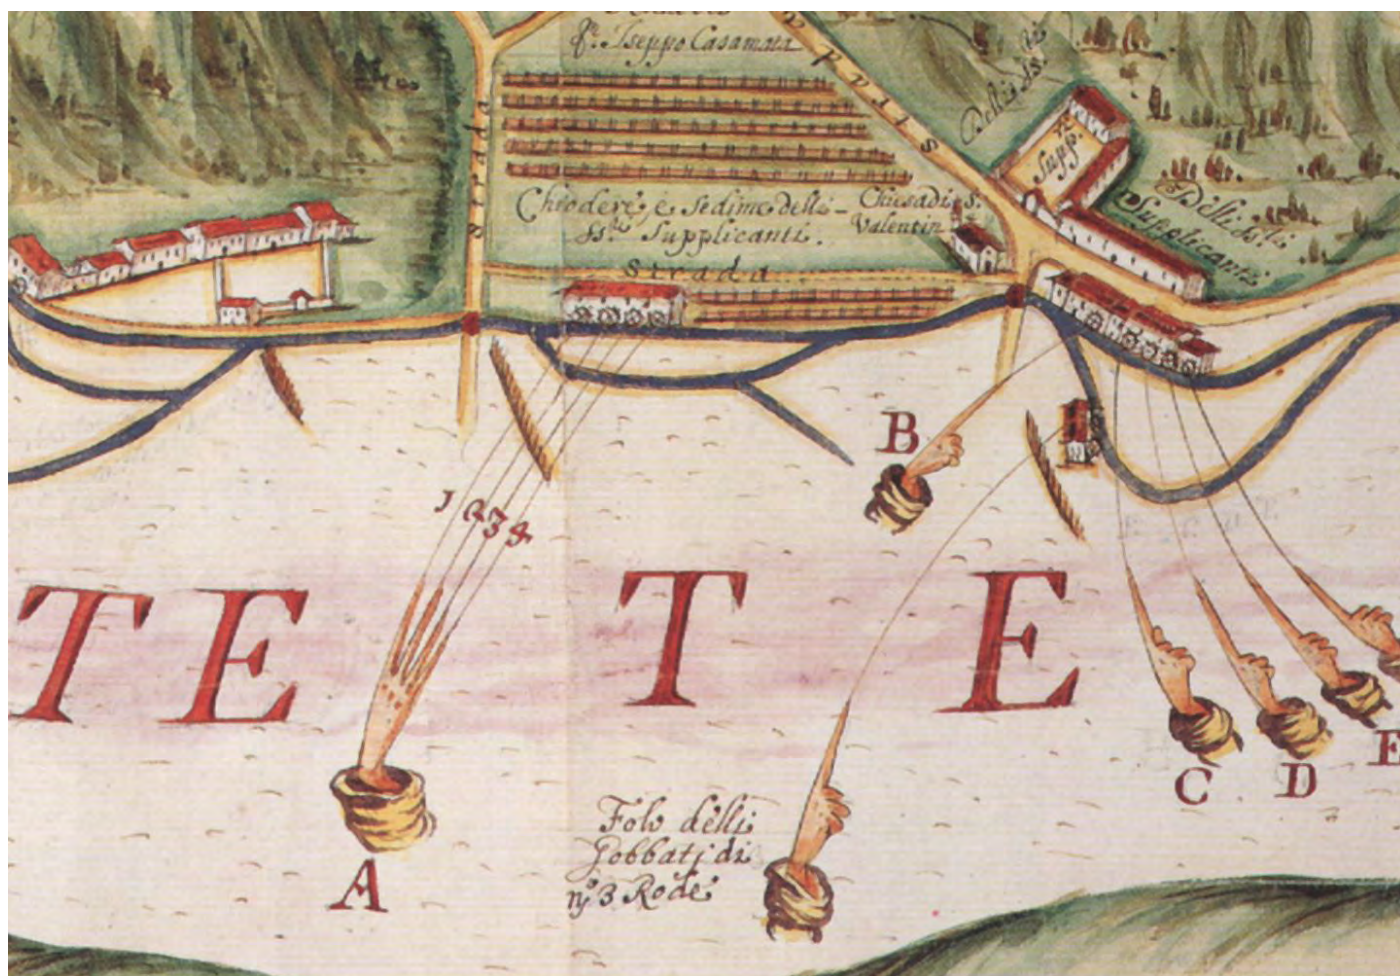 q.ᵐ Iseppo Casamata
strada
strada
Delli ss.ri
Supp.ti
Chiodere, e Sedime delli
ss.ti Supplicanti.
Chiesa di S.
Valentin
Delli ss.ti
Supplicanti
Strada
B
1 2 3 4
TE T E
C D E
Folo delli
Gobbati di
nᵒ 3 Rode
A